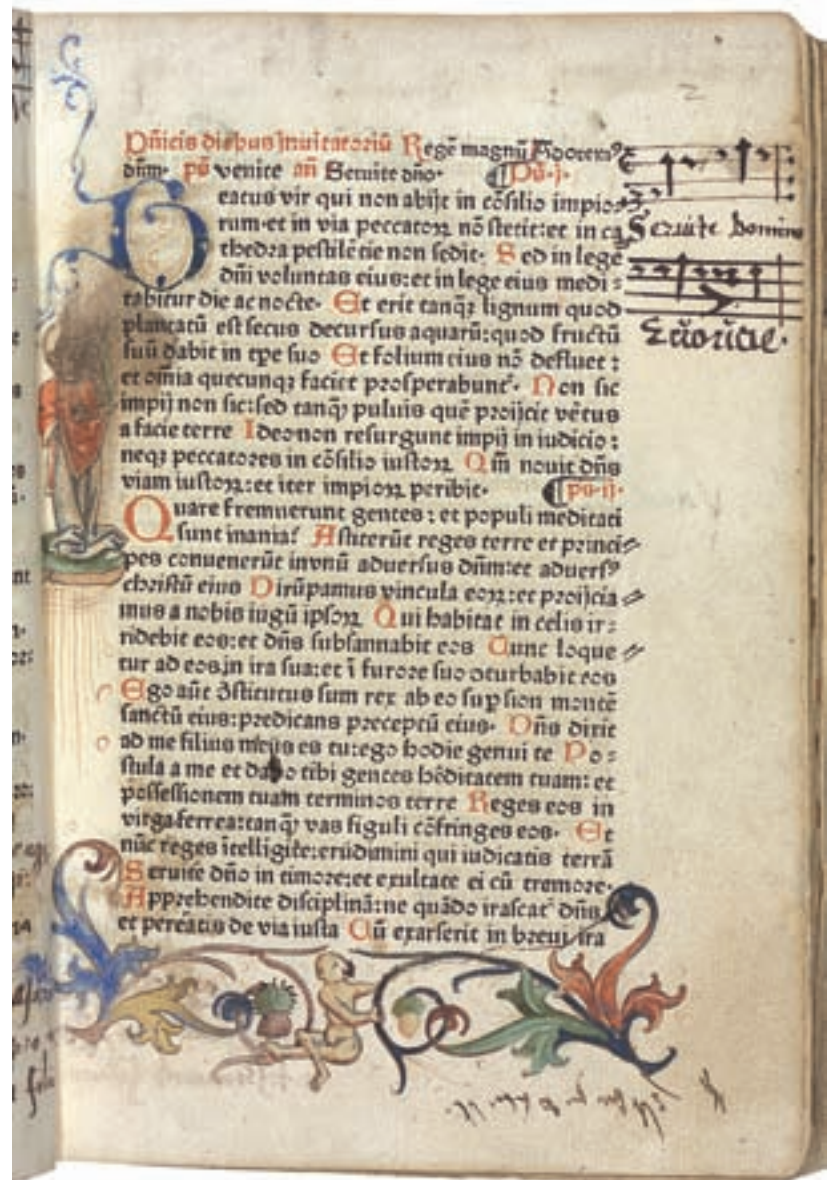 Dn̄icis diebus Inuitatoriū Regē magnū Adorem⁹
dn̄m· ps̄ venite an̄ Seruite dn̄o· ¶ Ps̄·j·
Beatus vir qui non abijt in cōsilio impioꝝ
rum·et in via peccatoꝝ nō stetit:et in ca
thedra pestilētie non sedit· Sed in lege
dn̄i voluntas eius:et in lege eius medi⸗
tabitur die ac nocte· Et erit tanqꝫ lignum quod
plantatū est secus decursus aquarū:quod fructū
suū dabit in tp̄e suo Et folium eius nō defluet :
et om̄ia quecunqꝫ faciet prosperabunt᷑· Non sic
impij non sic:sed tanqꝫ puluis quē proijcit vētus
a facie terre Ideo non resurgunt impij in iudicio :
neqꝫ peccatores in cōsilio iustoꝝ Qm̄ nouit dn̄s
viam iustoꝝ:et iter impioꝝ peribit· ¶ ps̄·ij·
Quare fremuerunt gentes : et populi meditati
sunt inania? Astiterūt reges terre et princi⸗
pes conuenerūt invnū aduersus dn̄m:et aduers⁹
christū eius Dirūpamus vincula eoꝝ:et proijcia⸗
mus a nobis iugū ipsoꝝ Qui habitat in celis ir⸗
ridebit eos:et dn̄s subsannabit eos Tunc loque⸗
tur ad eos,in ira sua:et ī furore suo ↄturbabit eos
Ego aūt ↄstitutus sum rex ab eo sup sion montē
sanctū eius:predicans preceptū eius· Dn̄s dixit
ad me filius meus es tu:ego hodie genui te Po⸗
stula a me et dabo tibi gentes hēditatem tuam: et
possessionem tuam terminos terre Reges eos in
virga ferrea:tanqꝫ vas figuli cōfringes eos· Et
nūc reges ītelligite:erudimini qui iudicatis terrā
Seruite dn̄o in timore:et exultate ei cū tremore·
Apprehendite disciplinā:ne quādo irascat᷑ dn̄s
et pereatis de via iusta Cū exarserit in breui ira
Seruite domino